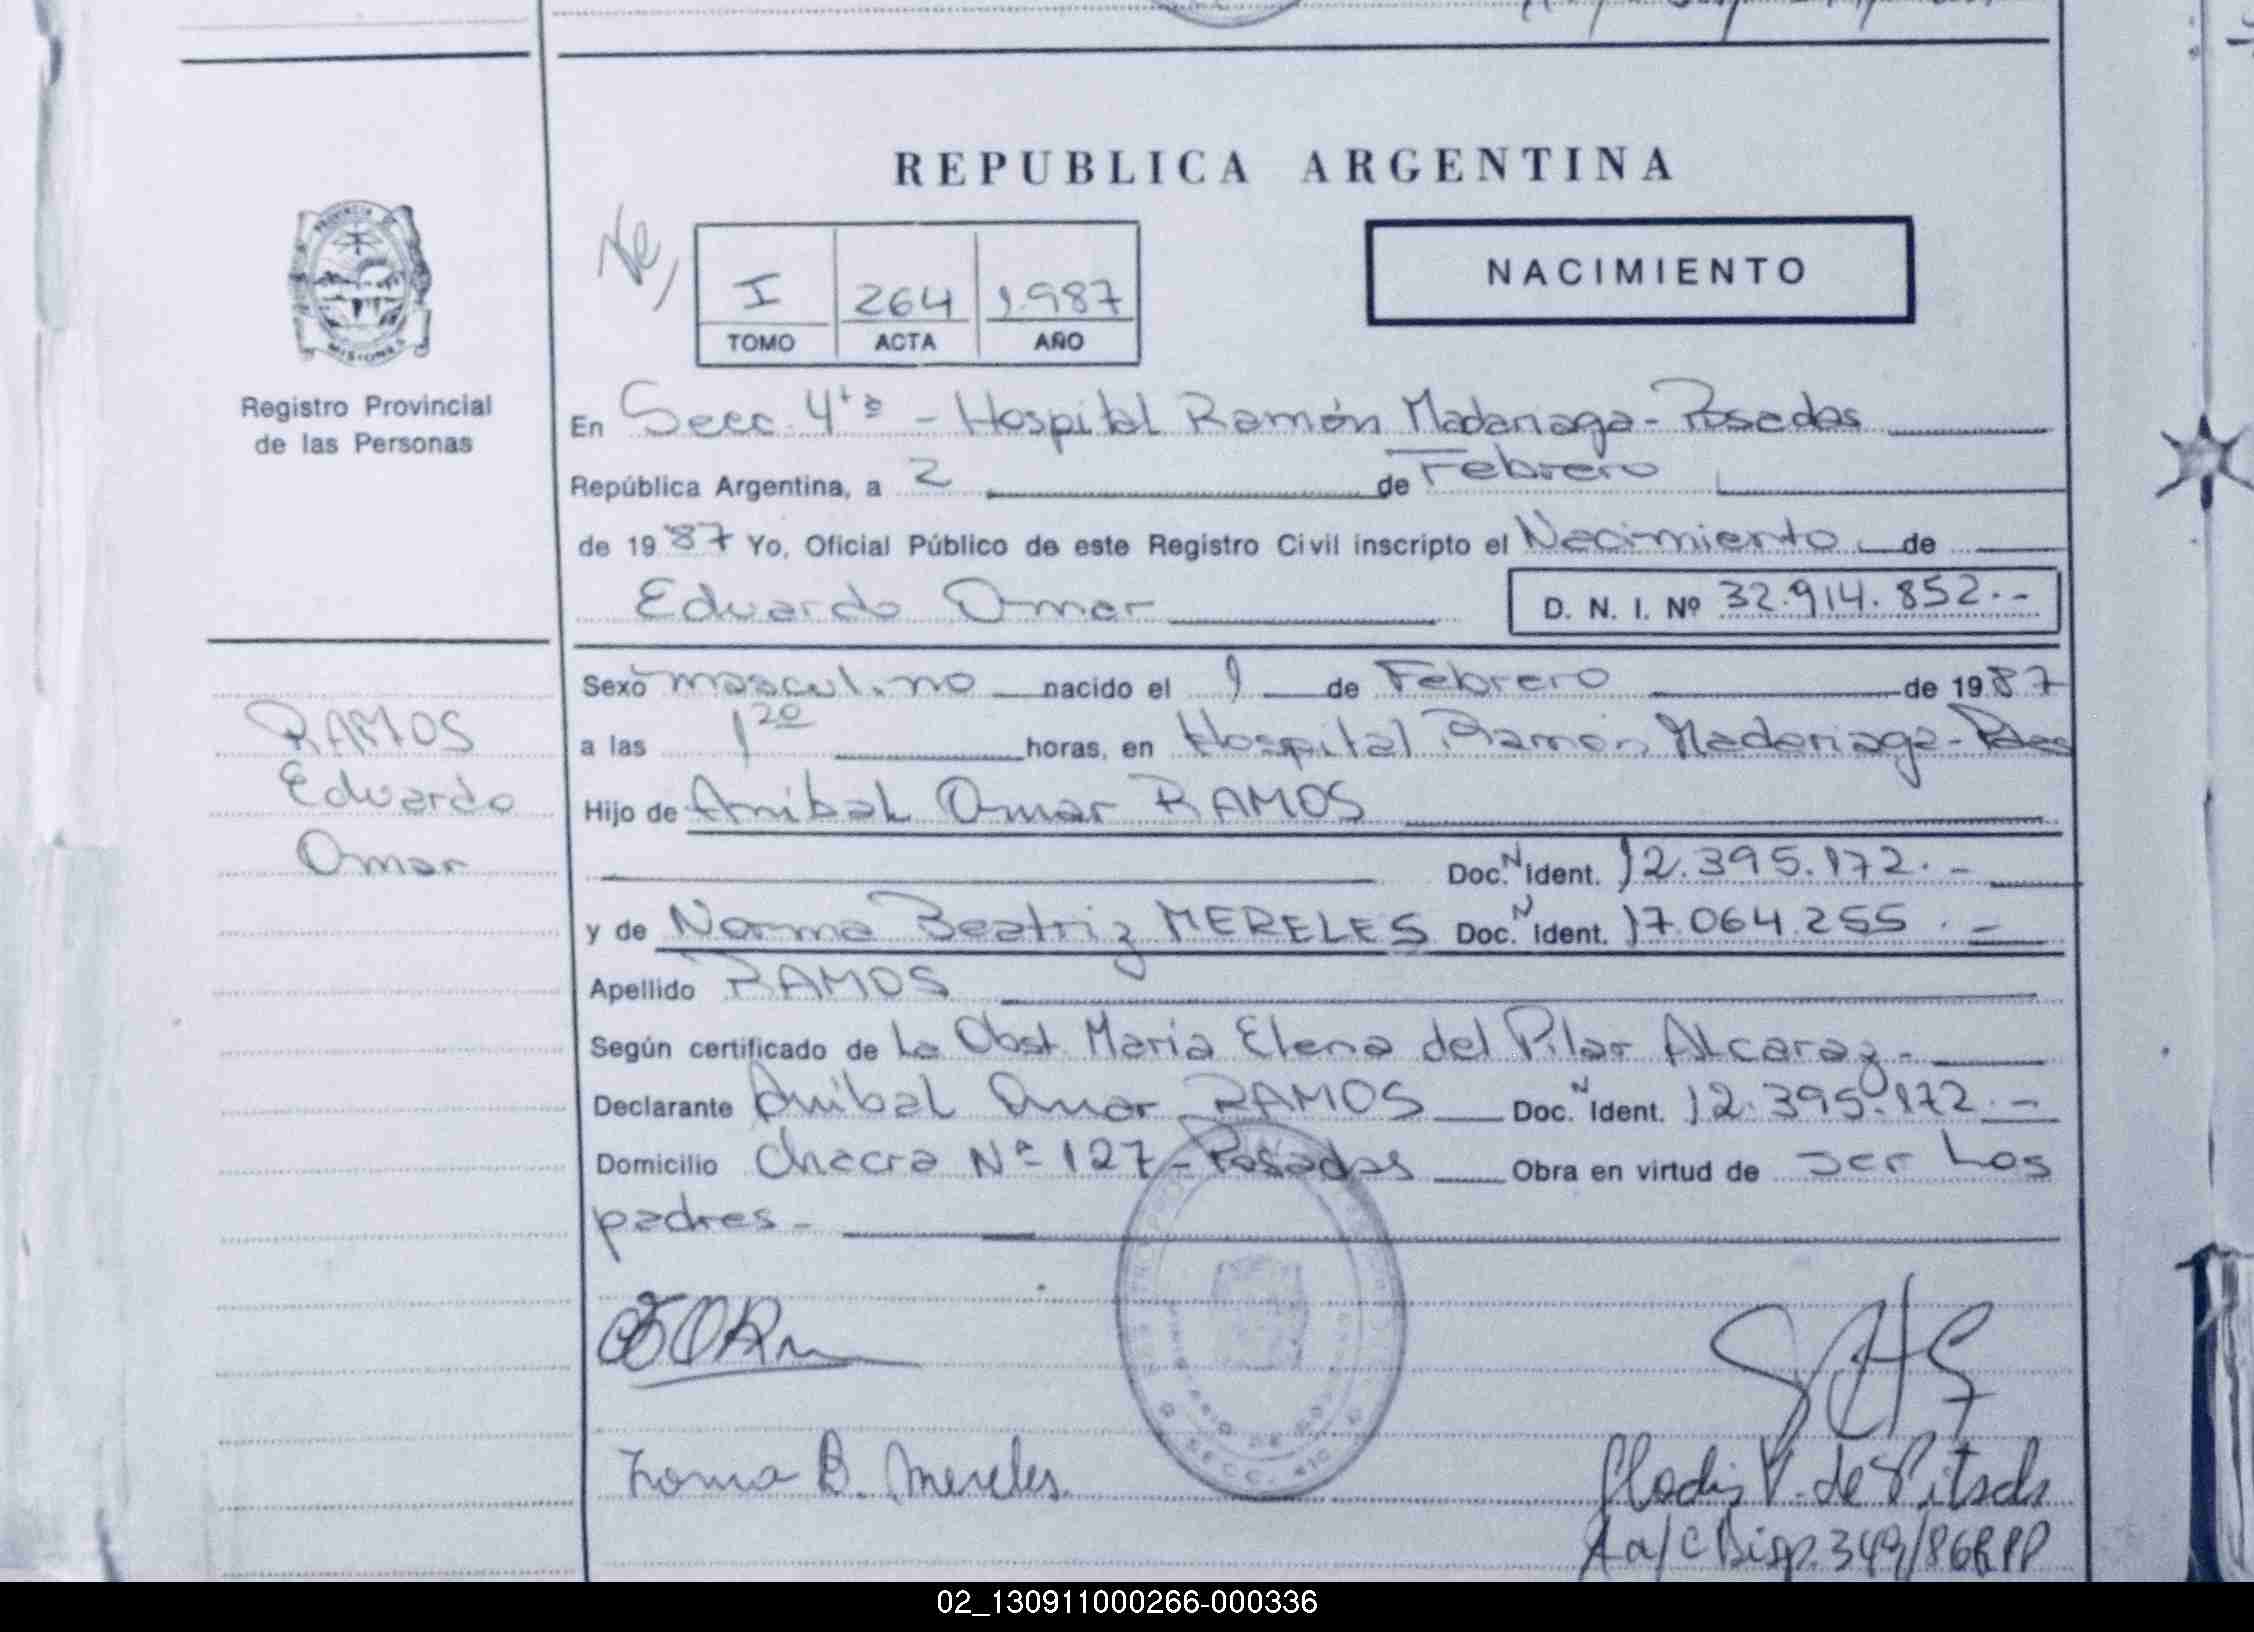 REPUBLICA ARGENTINA
PROVINCIA DE
MISIONES
Registro Provincial
de las Personas
I 264 1.987
TOMO ACTA AÑO
NACIMIENTO
En Secc. 4ta - Hospital Ramón Madariaga - Posadas
República Argentina, a 2 de Febrero
de 1987 Yo, Oficial Público de este Registro Civil inscripto el Nacimiento de
Eduardo Omar D. N. I. Nº 32.914.852.-
Sexo masculino nacido el 1 de Febrero de 1987
a las 1 20 horas, en Hospital Ramón Madariaga -
Hijo de Anibal Omar RAMOS
Doc. N Ident. 12.395.172.-
y de Norma Beatriz MERELES Doc. N Ident. 17.064.255.-
Apellido RAMOS
Según certificado de La Obst. Maria Elena del Pilar Alcaraz.-
Declarante Anibal Omar RAMOS Doc. N Ident. 12.395.172.-
Domicilio Chacra Nº 127 - Posadas Obra en virtud de ser los
padres -
RAMOS
Eduardo
Omar
SECC. 4ta
Norma B. Mereles.
V. de
a/c Disp. 349/86 RPP
02_130911000266-000336